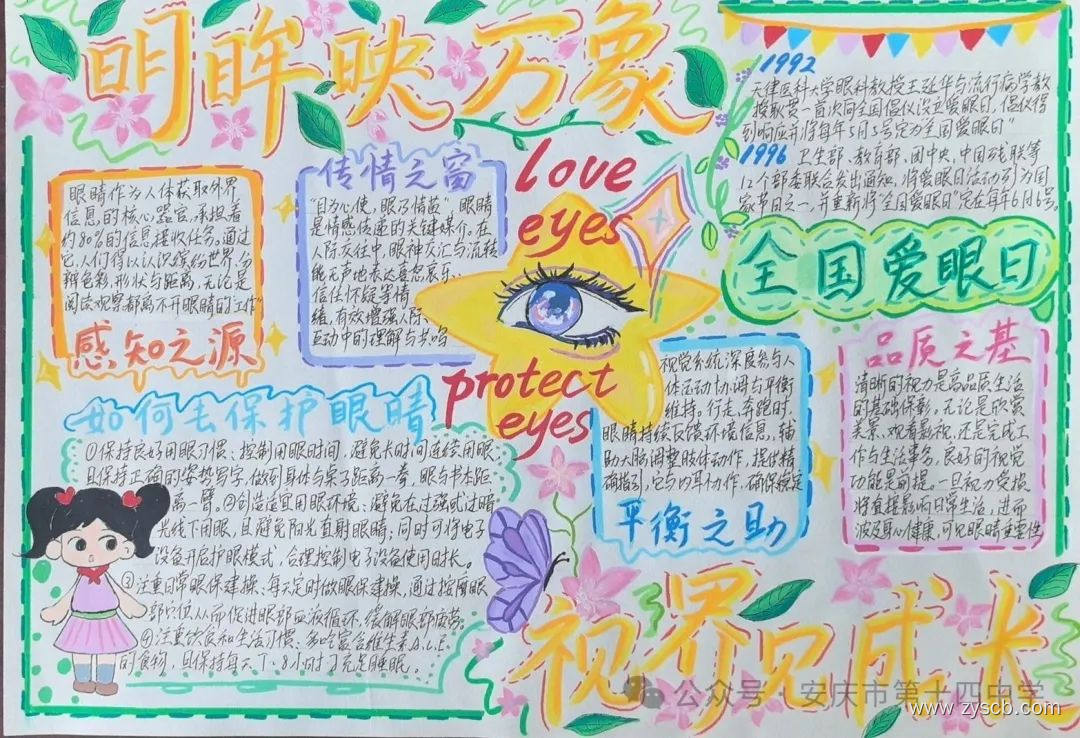 明眸映万象
1992
天津医科大学眼科教授王延华与流行病学教
授耿贯一首次向全国倡仪设立爱眼日,倡仪得
到响应并将每年5月5号定为全国爱眼日"
1996 卫生部、教育部、团中央、中国残联等
12个部委联合发出通知,将爱眼日活动列为国
家节日之一,并重新将"全国爱眼日"定在每年6月6号。
全国爱眼日
眼睛作为人体获取外界
信息的核心器官,承担着
约80%的信息接收任务。通过
它,人们得以认识缤纷世界,分
辨色彩,形状与距离,无论是
阅读观察都离不开眼睛的"工作"
感知之源
传情之窗
"目为心使,眼乃情苗" 眼睛
是情感传递的关键媒介。在
人际交往中,眼神交汇与流转
能无声地表达喜怒哀乐、
信任怀疑等情
绪,有效增强人际
互动中的理解与共鸣
love
eyes
protect
eyes
如何去保护眼睛
①保持良好用眼习惯:控制用眼时间,避免长时间连续用眼
且保持正确的姿势写字,做到身体与桌子距离一拳,眼与书本距
离一臂。②创造适宜用眼环境:避免在过强或过暗
光线下用眼,且避免阳光直射眼睛;同时可将电子
设备开启护眼模式,合理控制电子设备使用时长。
③注重日常眼保健操:每天定时做眼保健操,通过按摩眼
部穴位从而促进眼部血液循环,缓解眼部疲劳。
④注重饮食和生活习惯:多吃富含维生素A.C.E.
的食物,且保持每天7-8小时充足睡眠.
视觉系统深度参与人
体运动协调与平衡
维持。行走、奔跑时,
眼睛持续反馈环境信息,辅
助大脑调整肢体动作,提供精
确指引,它与内耳协作,确保稳定
平衡之助
品质之基
清晰的视力是高品质生活
的基础保障。无论是欣赏
美景、观看影视,还是完成工
作与生活事务,良好的视觉
功能是前提。一旦视力受损
将直接影响日常生活,进而
波及身心健康,可见眼睛重要性
视界见成长
公众号·安庆市第十四中学
www.zyscb.com